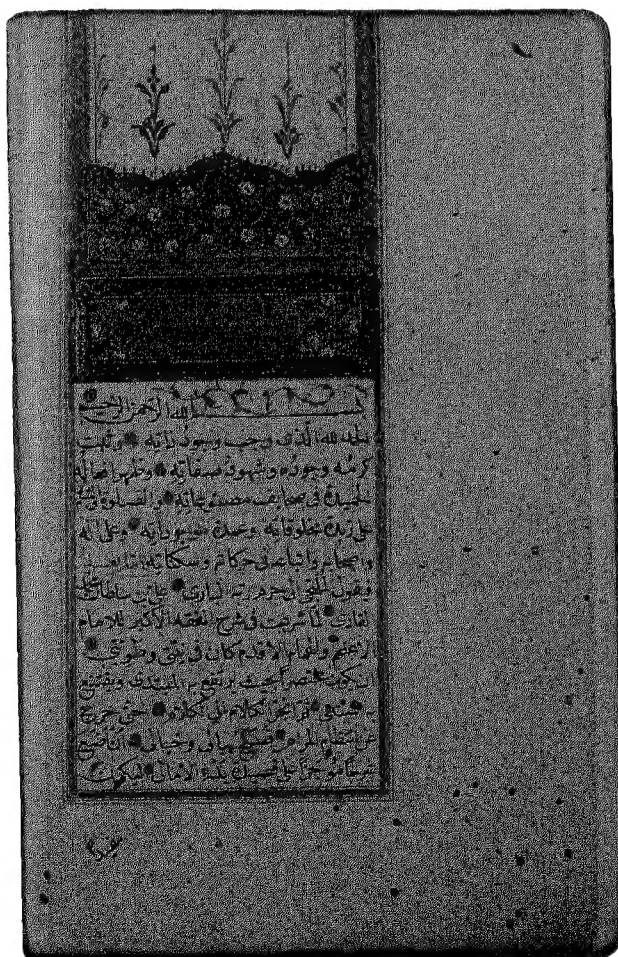 بسم الله الرحمن الرحيم
الحمد لله الذي وجب وجود ذاته وثبت
كرمه وجوده وشهود صفاته وظهر افعاله
الحميدة في صحايف مصنوعاته والصلوة
على زبدة مخلوقاته وعمدة موجوداته وعلى اله
واصحابه واتباعه في حركاته وسكناته اما بعد
فيقول الملتجي الى حرم ربه الباري علي بن سلطان محمد
القاري لما شرعت في شرح الفقه الاكبر للامام
الاعظم والهمام الاقدم كان في نيتي وطويتي
ان يكون مختصرا بحيث ينتفع به المبتدي ويقتنع
به المنتهي فجر الكلام الى الكلام حتى خرج
عن نظام المرام فسنح ببالي وخيالي ان اضع
شرحا موجزا على قصيدة بدء الامالي ليكون